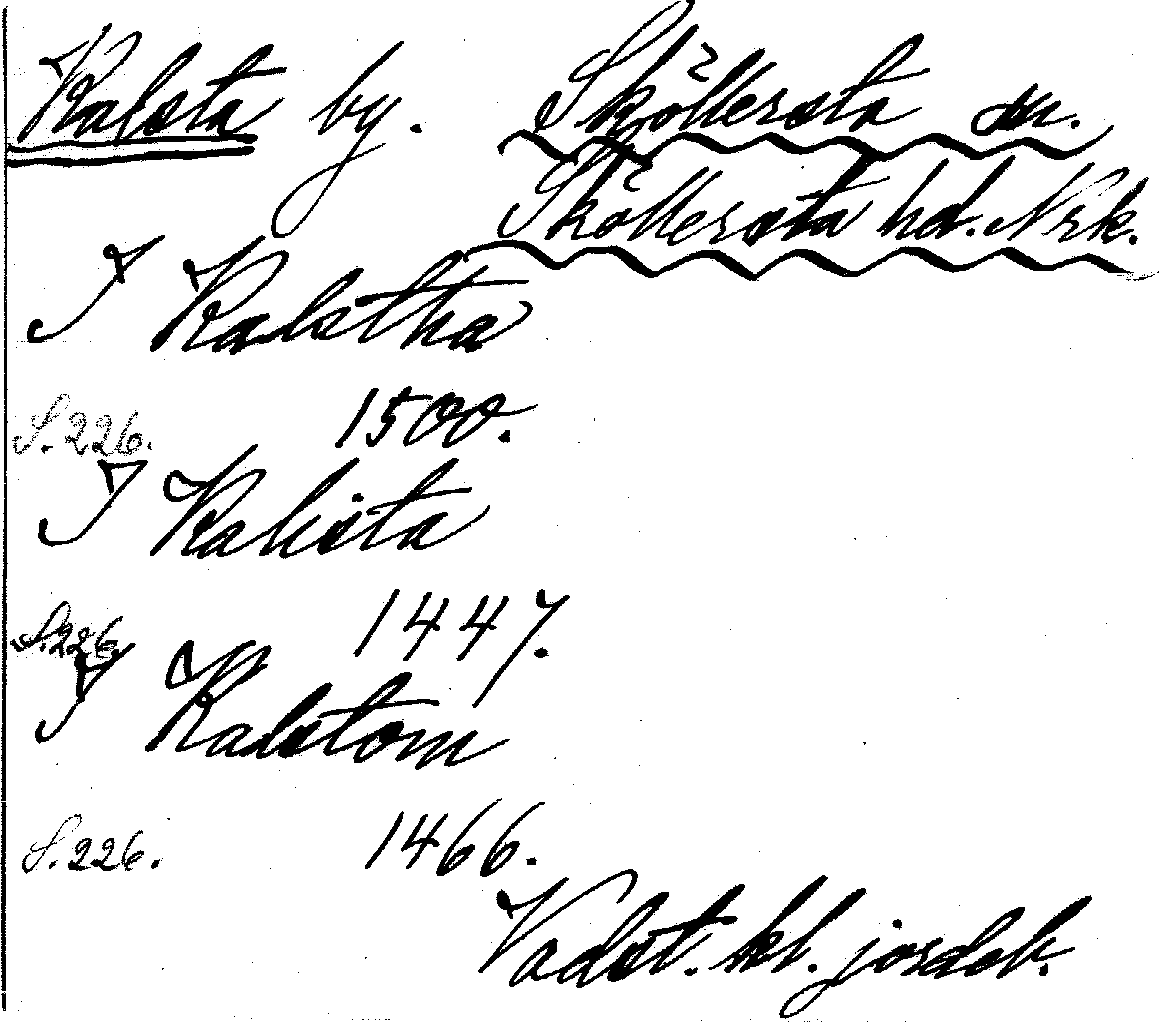 Ralsta by. Sköllersta sn.
Sköllersta hd. Nrk.
I Ralstha
S. 226. 1500.
I Ralista
S. 226. 1447.
I Ralstom
S. 226. 1466.
Vadst. kl. jordeb.